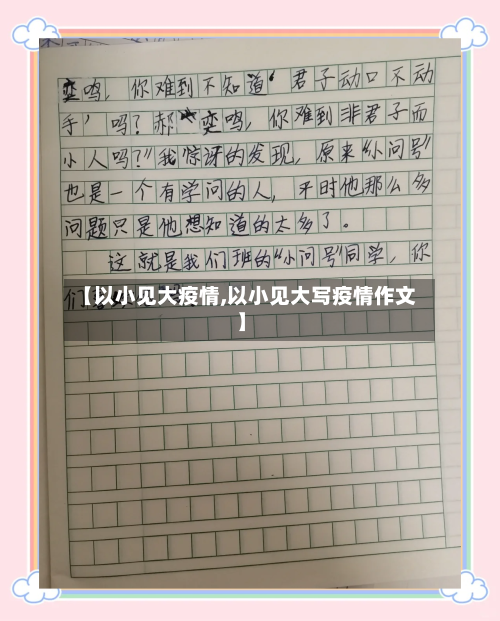 奕鸣，你难到不知道“君子动口不动
手”吗？郝奕鸣，你难到非君子而
小人吗？”我惊讶的发现，原来“小问号”
也是一个有学问的人，平时他那么多
问题只是他想知道的太多了。
这就是我们班的“小问号”同学，你
们
【以小见大疫情,以小见大写疫情作文
】